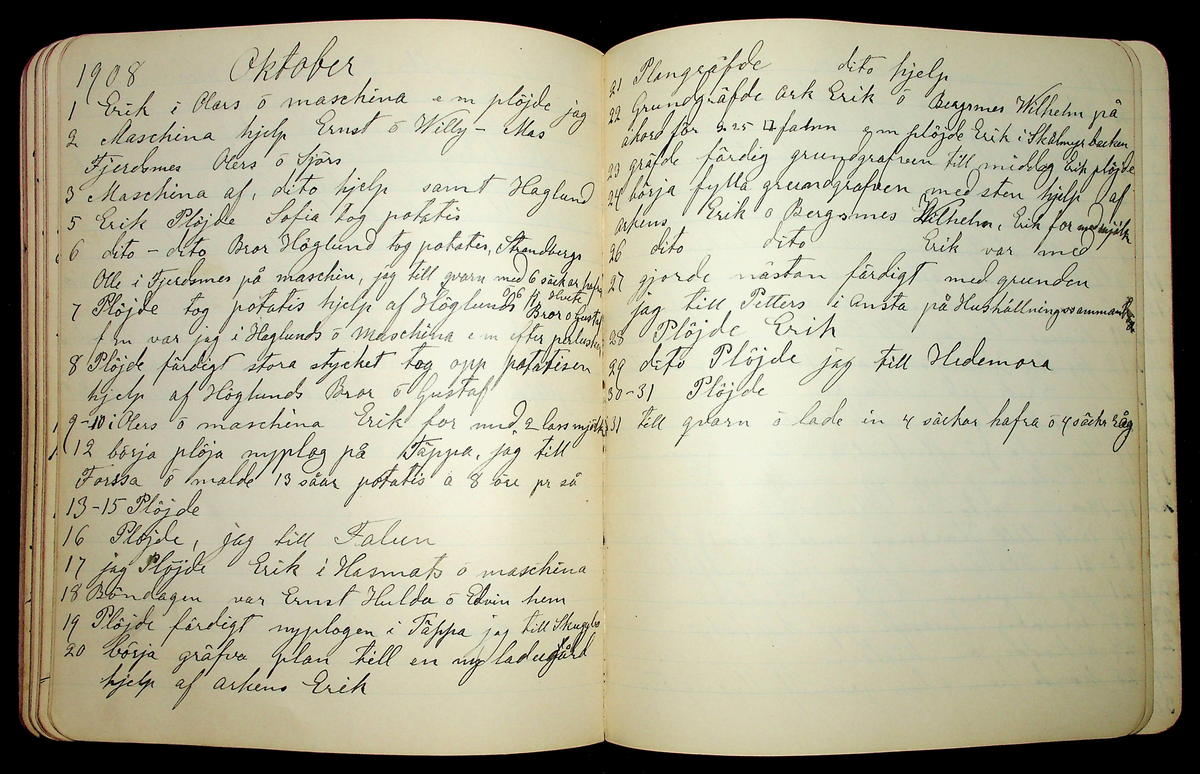 1908 Oktober
1 Erik i Olars ö maschina e m plöjde jag
2 Maschina hjelp Ernst ö Willy - Mas
Fjerosmes Olers ö Sjörs
3 Maschina af, dito hjelp samt Haglund
5 Erik Plöjde Sofia tog potatis
6 dito - dito Bror Höglund tog potates, Strandbergs
Olle i Fjerosmes på maschin, jag till qvarn med 6 säckar
7 Plöjde tog potatis hjelp af Höglunds Bror o Gustaf
f m var jag i Haglunds ö Maschina e m efter
8 Plöjde färdigt stora stycket tog opp potatisen
hjelp af Höglunds Bror ö Gustaf
9-10 i Olers ö maschina Erik for med 2 lass mjölk
12 börja plöja nyplog på Täppa, jag till
Forssa ö malde 13 såar potatis a 8 öre pr så
13-15 Plöjde
16 Plöjde, jag till Falun
17 jag Plöjde Erik i Hasmats ö maschina
18 Böndagen var Ernst Hulda ö Edvin hem
19 Plöjde färdigt nyplogen i Täppa jag till
20 börja gräfva plan till en ny ladugård
hjelp af arkens Erik
21 Plangräfde dito hjelp
22 Grundgräfde Ark Erik ö Bergsmes Wilhelm på
akord för 2.25 famn e m plöjde Erik i Skälmyrbacken
23 gräfde färdig grundgrafven till middag Erik plöjde
24 börja fylla grundgrafven med sten hjelp af
arkens Erik o Bergsmes Wilhelm, Erik for med mjölk
26 dito dito Erik var med
27 gjorde nästan färdigt med grunden
jag till Petters i Ansta på
28 Plöjde Erik
29 dito Plöjde jag till Hedemora
30-31 Plöjde
31 till qvarn ö lade in 4 säckar hafra ö 4 säckr Råg